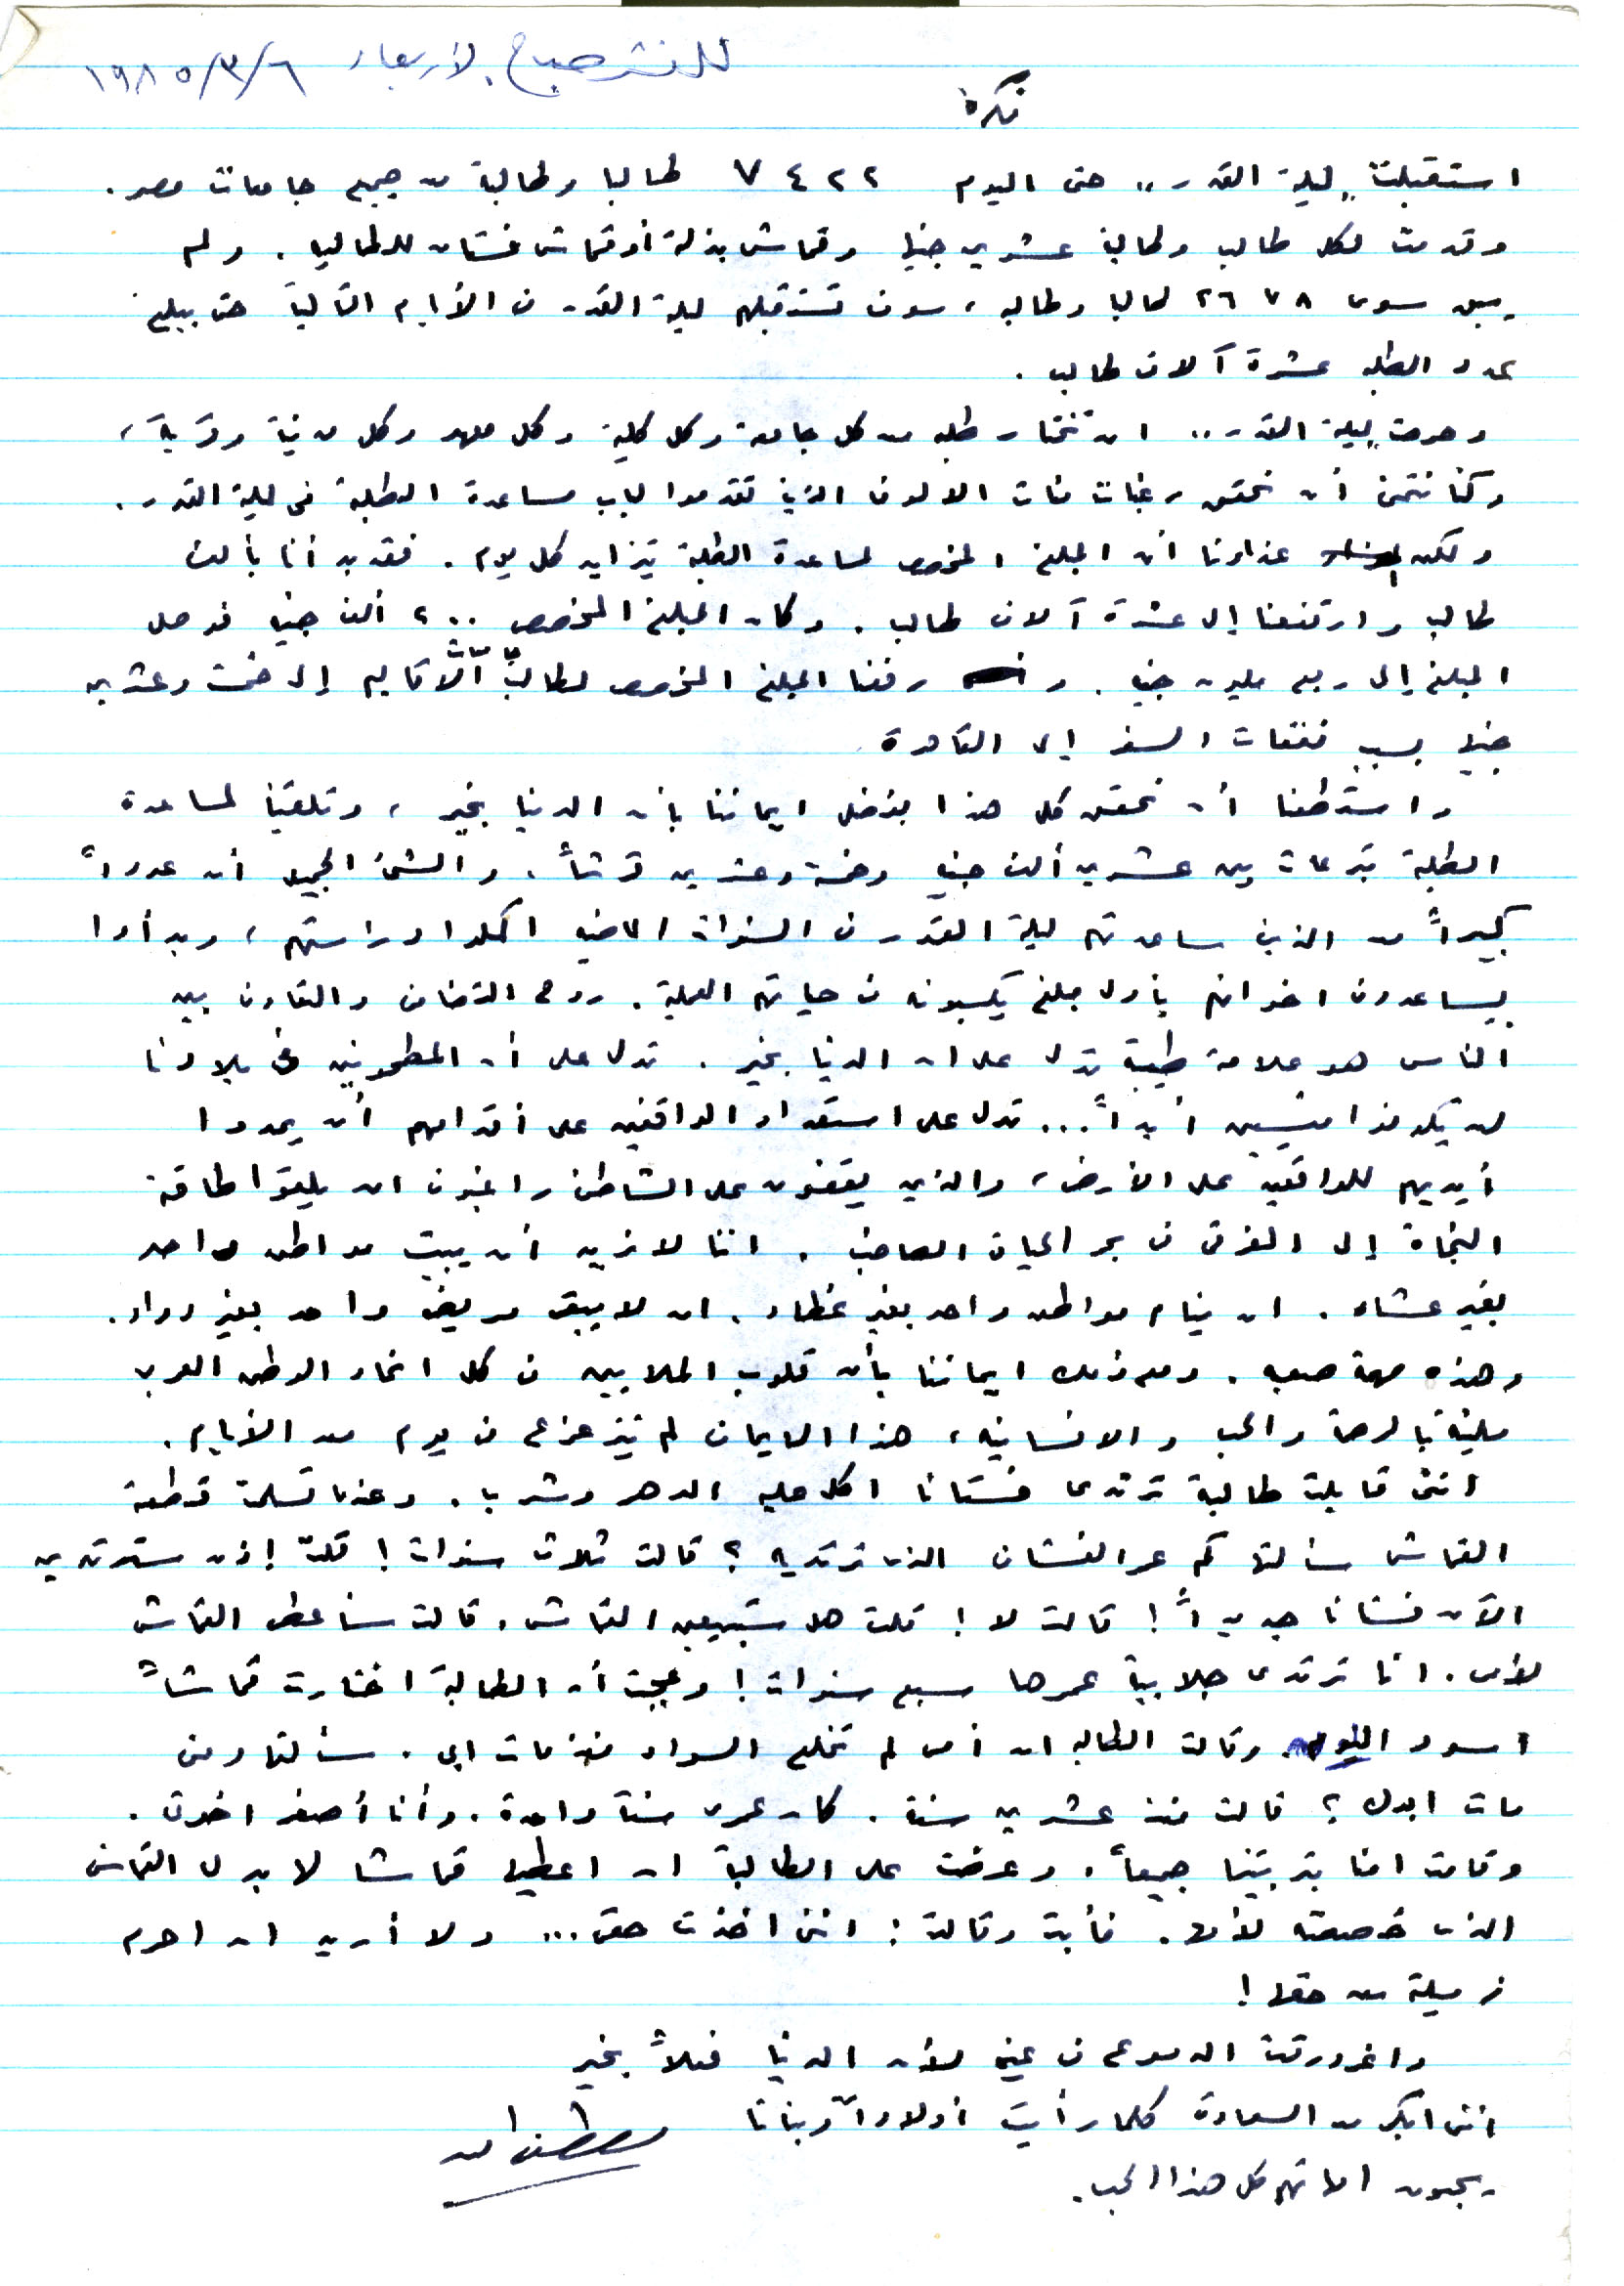 للنشر صباح الأربعاء ١٩٨٥/٣/٦
فكرة
استقبلت "ليلة القدر" حتى اليوم ٧٤٢٢ طالبا وطالبة من جميع جامعات مصر.
وقدمت لكل طالب وطالبة عشرين جنيها وقماش بذلة أو قماش فستان للطالبة. ولم
يبق سوى ٢٦٧٨ طالبا وطالبه، سوف تستقبلهم ليلة القدر في الأيام التالية حتى يبلغ
عدد الطلبه عشرة آلاف طالب.
وحرصت "ليلة القدر" ان تختار طلبه من كل جامعة وكل كلية وكل معهد وكل مدينة وقرية،
وكنا نتمنى أن نحقق رغبات مئات الالوف الذين تقدموا لباب مساعدة الطلبة في ليلة القدر.
ولكن عزاءنا أن المبلغ المخصص لمساعدة الطلبة يتزايد كل يوم. فقد بدأنا بألف
طالب وارتفعنا إلى عشرة آلاف طالب. وكان المبلغ المخصص ٢٠٠ ألف جنيه فوصل
المبلغ إلى ربع مليون جنيه. و رفعنا المبلغ المخصص لطالبات الأقاليم إلى خمسة وعشرين
جنيها بسبب نفقات السفر إلى القاهرة
واستطعنا أن نحقق كل هذا بفضل ايماننا بأن الدنيا بخير، وتلقينا لمساعدة
الطلبة تبرعات بين عشرين ألف جنيه وخمسة وعشرين قرشاً. والشئ الجميل أن عدداً
كبيراً من الذين ساعدتهم ليلة القدر في السنوات الماضية اكملوا دراستهم، وبدأوا
يساعدون اخوانهم بأول مبلغ يكسبونه في حياتهم العملية. روح التضامن والتعاون بين
الناس هو علامة طيبة تدل على ان الدنيا بخير. تدل على أن المطحونين في بلادنا
لن يكونوا منسيين أبداً... تدل على استعداد الواقفين على أقدامهم أن يمدوا
أيديهم للواقعين على الأرض، والذين يقفون على الشاطئ راغبون ان يلقوا طاقة
النجاة إلى الغرقى في بحر الحياة الصاخب. اننا لا نريد أن يبيت مواطن واحد
بغير عشاء. ان ينام مواطن واحد بغير غطاء. ان لا يبقى مريض واحد بغير دواء.
وهذه مهمة صعبه. ومع ذلك ايماننا بأن قلوب الملايين في كل انحاء الوطن العربي
مليئة بالرحمة والحب والانسانية، هذا الايمان لم يتزعزع في يوم من الأيام.
انني قابلت طالبة ترتدى فستانا اكل عليه الدهر وشرب. وعندما تسلمت قطعة
القماش سألتها كم عمر الفستان الذى ترتديه؟ قالت ثلاث سنوات! قلت إذن سترتدين
الآن فستانا جديداً! قالت لا! قلت هل ستبيعين القماش. قالت سأعطى القماش
لأمى. انها ترتدى جلابية عمرها سبع سنوات! وعجبت أن الطالبة اختارت قماشاً
اسود اللون. وقالت الطالبه ان أمى لم تخلع السواد منذ مات ابى. سألتها ومتى
مات ابوك؟ قالت منذ عشرين سنة. كان عمرى سنة واحدة. وأنا أصغر اخوتى.
وقامت امنا بتربيتنا جميعاً. وعرضت على الطالبة ان اعطيها قماشا لا بدل القماش
الذى خصصته لأمها. فأبت وقالت: انني اخذت حقى... ولا أريد ان احرم
زميلة من حقها!
واغرورقت الدموع في عيني لأن الدنيا فعلاً بخير
انني ابكى من السعادة كلما رأيت أولادنا وبناتنا
يحبون امهاتهم كل هذا الحب.
مصطفى امين